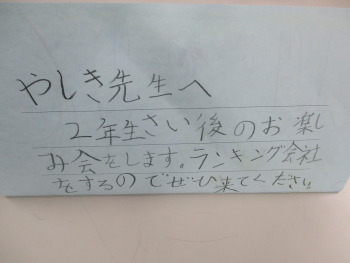 やしき先生へ
2年生さい後のお楽し
み会をします。ランキング会社
をするのでぜひ来てください